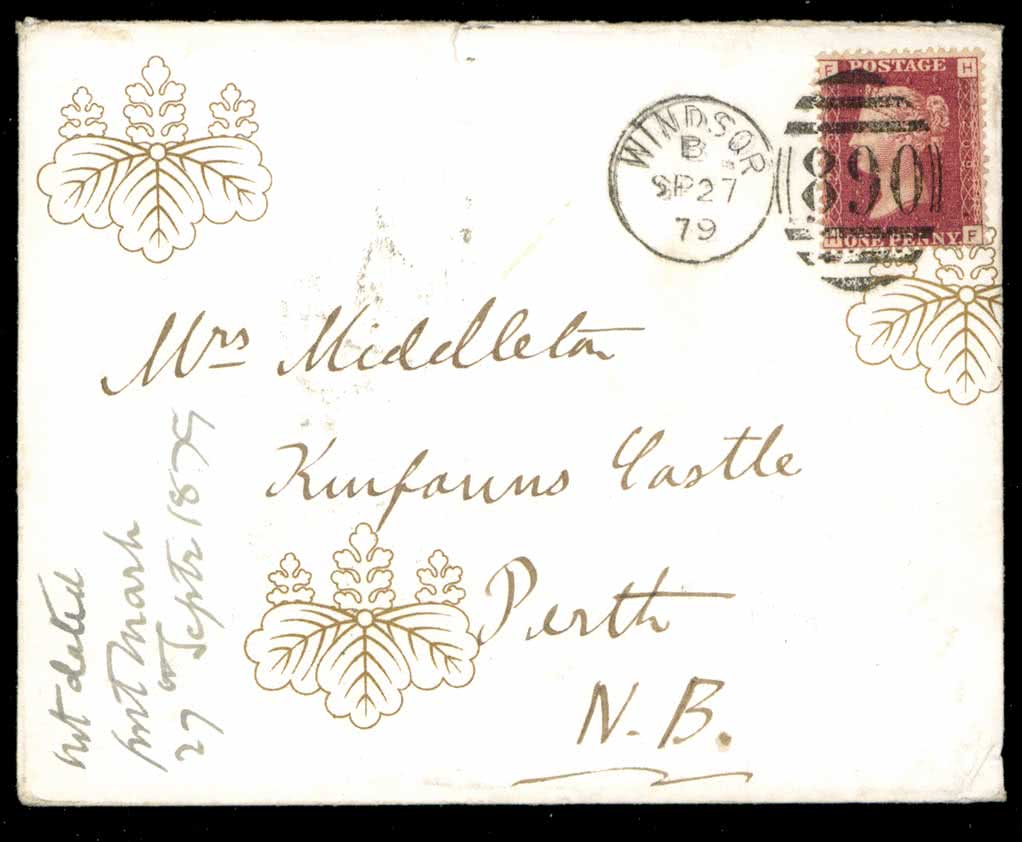 F POSTAGE H
WINDSOR
B
SP 27
79
890
H ONE PENNY F
Mrs Middleton
Kinfauns Castle
Perth
N.B.
not dated
post mark
27 Septr 1879